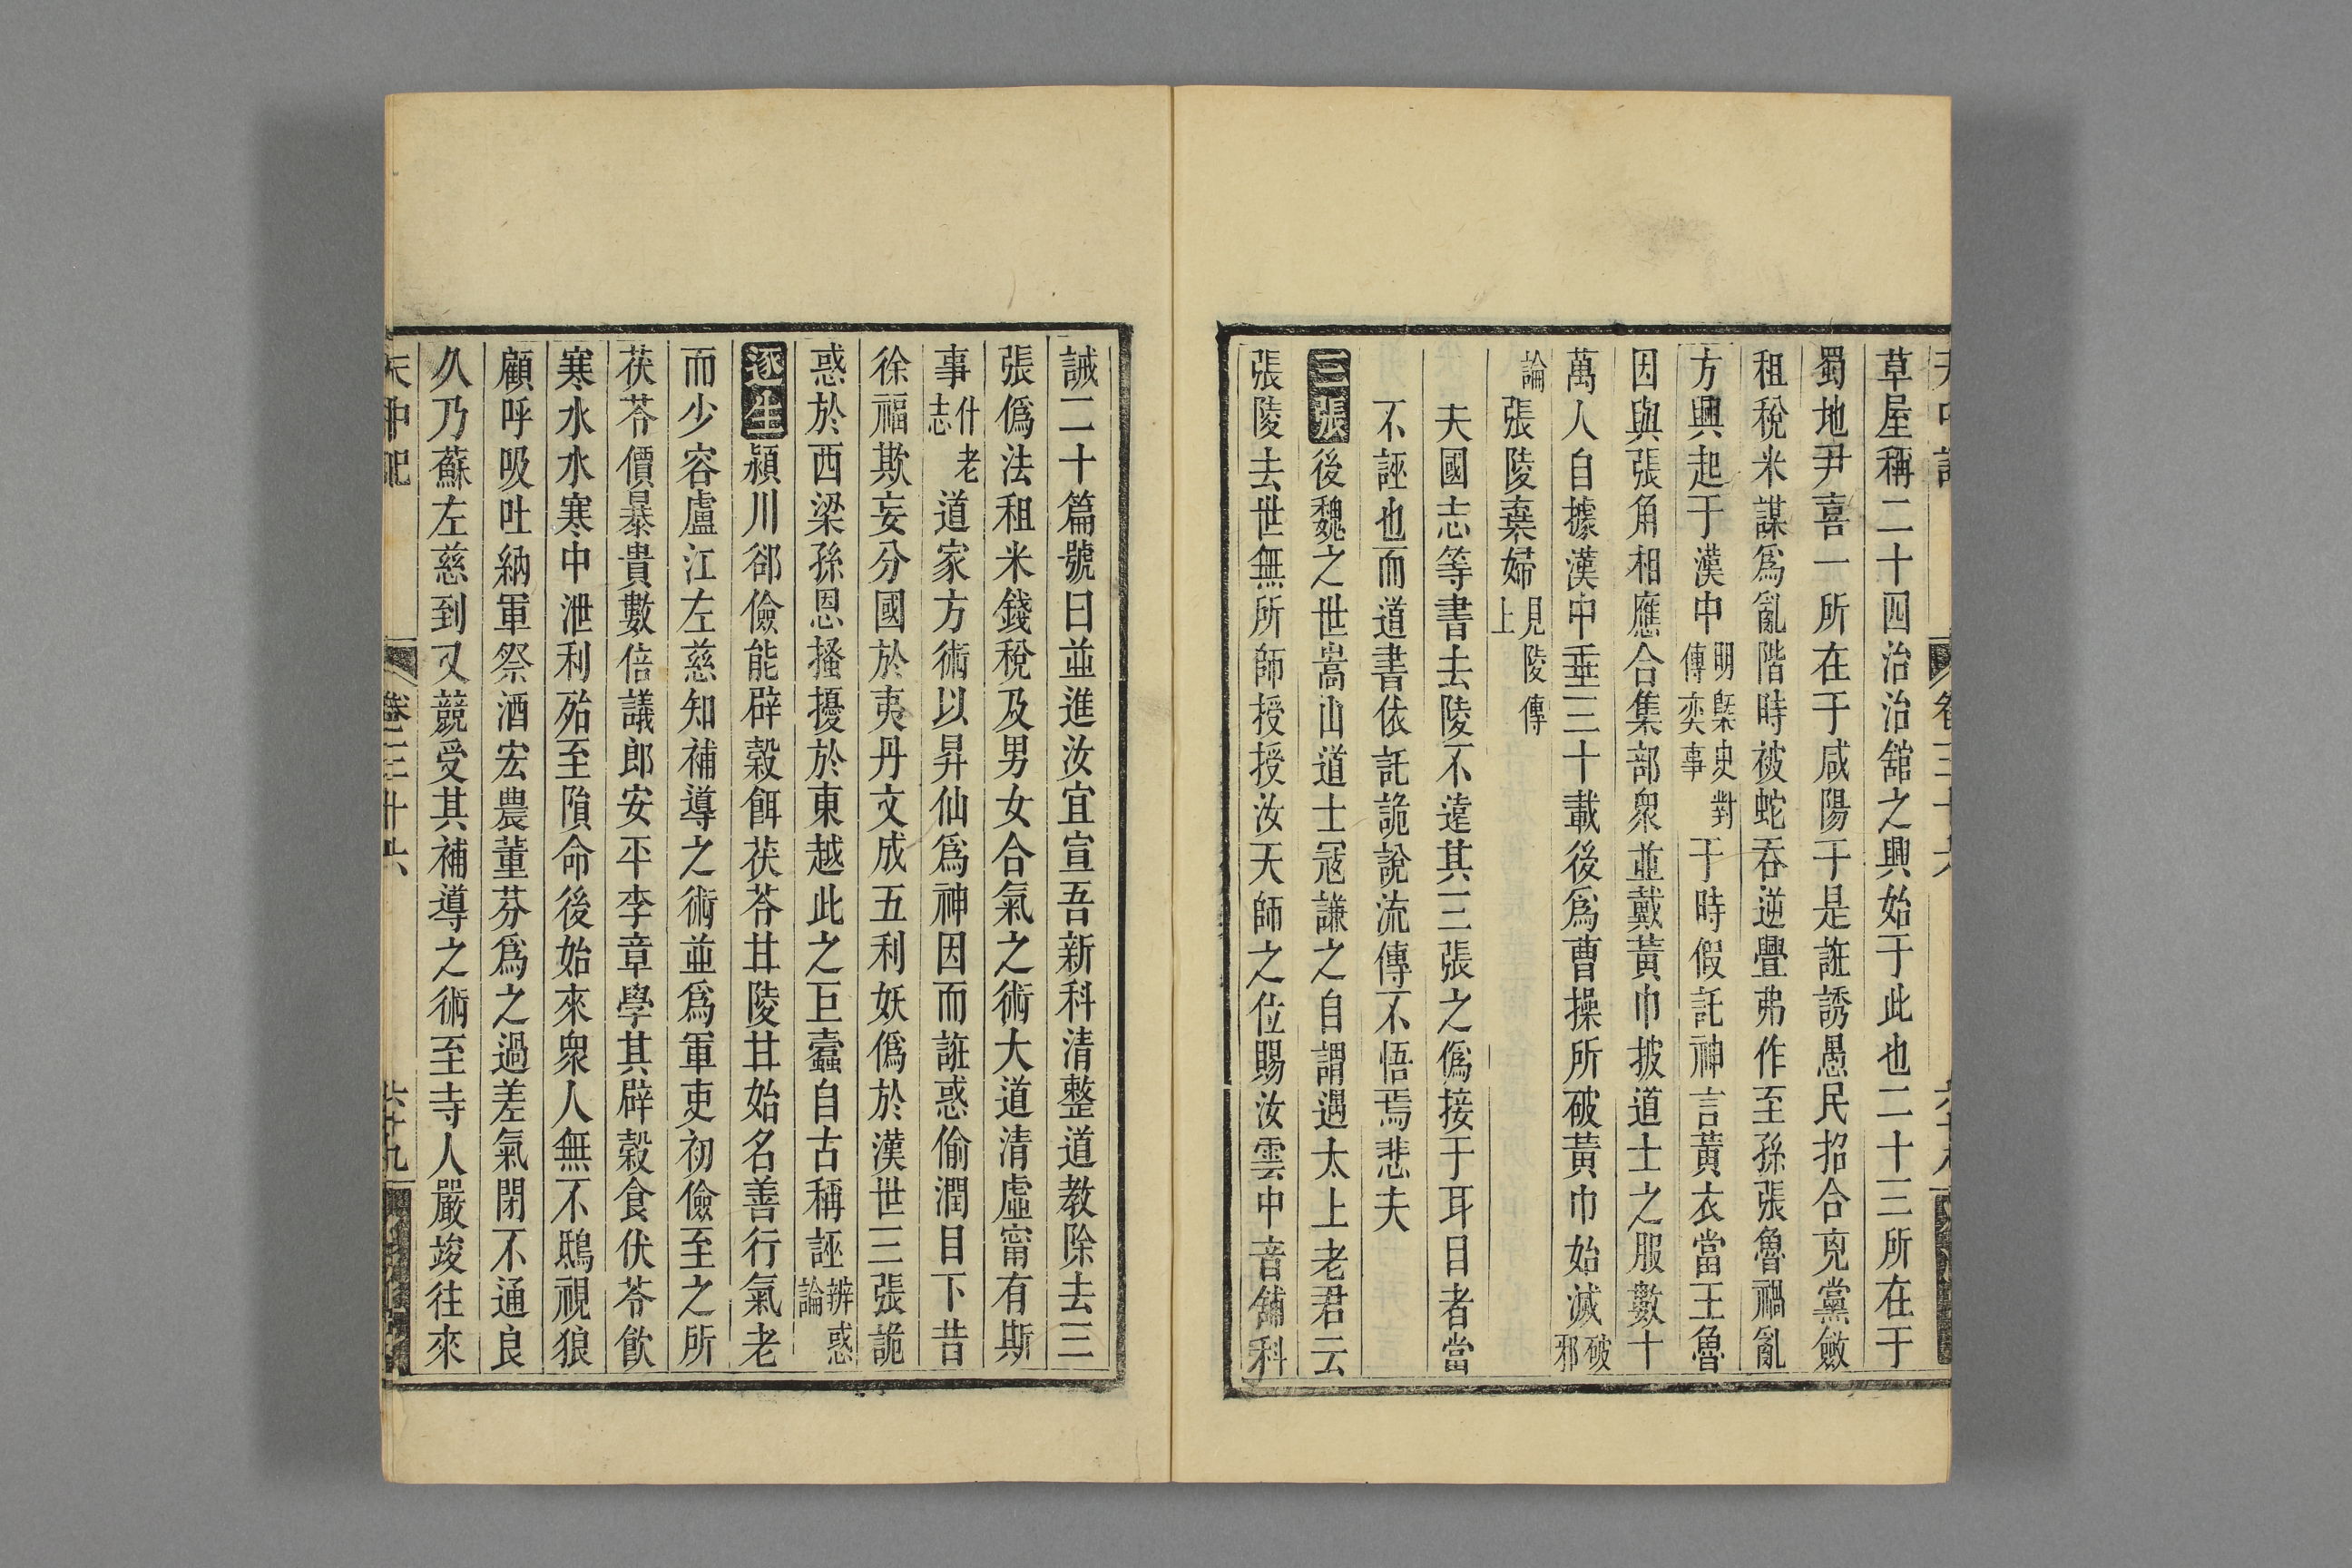 草屋稱二十四治治舘之興始于此也二十三所在于
蜀地尹喜一所在于咸陽于是誑誘愚民招合兇黨斂
租稅米謀爲亂階時被蛇吞逆釁弗作至孫張魯禍亂
方興起于漢中明槩史對傳奕事于時假託神言黃衣當王魯
因與張角相應合集部衆並戴黃巾披道士之服數十
萬人自據漢中垂三十載後爲曹操所破黃巾始滅破邪
論張陵棄婦見陵傳上
夫國志等書去陵不遠其三張之僞接于耳目者當
不誣也而道書依託詭說流傳不悟焉悲夫
三張後魏之世嵩山道士寇謙之自謂遇太上老君云
張陵去世無所師授授汝天師之位賜汝雲中音誦科
誡二十篇號曰並進汝宜宣吾新科清整道教除去三
張僞法租米錢稅及男女合氣之術大道清虛甯有斯
事什老志道家方術以昇仙爲神因而誑惑偷潤目下昔
徐福欺妄分國於夷丹文成五利妖僞於漢世三張詭
惑於西梁孫恩搔擾於東越此之巨蠹自古稱誣辨惑論
逐生潁川郤儉能辟穀餌茯苓甘陵甘始名善行氣老
而少容盧江左慈知補導之術並爲軍吏初儉至之所
茯苓價暴貴數倍議郎安平李章學其辟穀食伏苓飮
寒水水寒中泄利殆至隕命後始來衆人無不鴟視狼
顧呼吸吐納軍祭酒宏農董芬爲之過差氣閉不通良
久乃蘇左慈到又競受其補導之術至寺人嚴竣往來
天中記
卷三十六
六十九